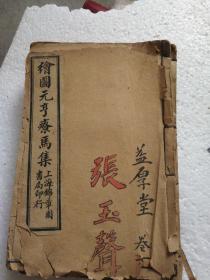 益厚堂 卷
張玉聲
繪圖元亨療馬集
上海錦章圖
書局印行